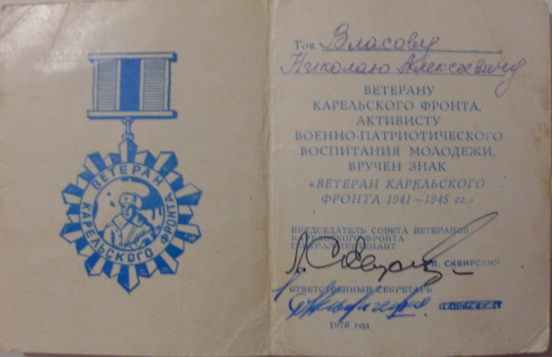 ВЕТЕРАН
КАРЕЛЬСКОГО ФРОНТА
Тов. Власову
Николаю Алексеевичу
ВЕТЕРАНУ
КАРЕЛЬСКОГО ФРОНТА,
АКТИВИСТУ
ВОЕННО-ПАТРИОТИЧЕСКОГО
ВОСПИТАНИЯ МОЛОДЕЖИ,
ВРУЧЕН ЗНАК
«ВЕТЕРАН КАРЕЛЬСКОГО
ФРОНТА 1941—1945 гг.»
ПРЕДСЕДАТЕЛЬ СОВЕТА ВЕТЕРАНОВ
КАРЕЛЬСКОГО ФРОНТА
ГЕНЕРАЛ-ЛЕЙТЕНАНТ
СКВИРСКИЙ
ОТВЕТСТВЕННЫЙ СЕКРЕТАРЬ
1976 год